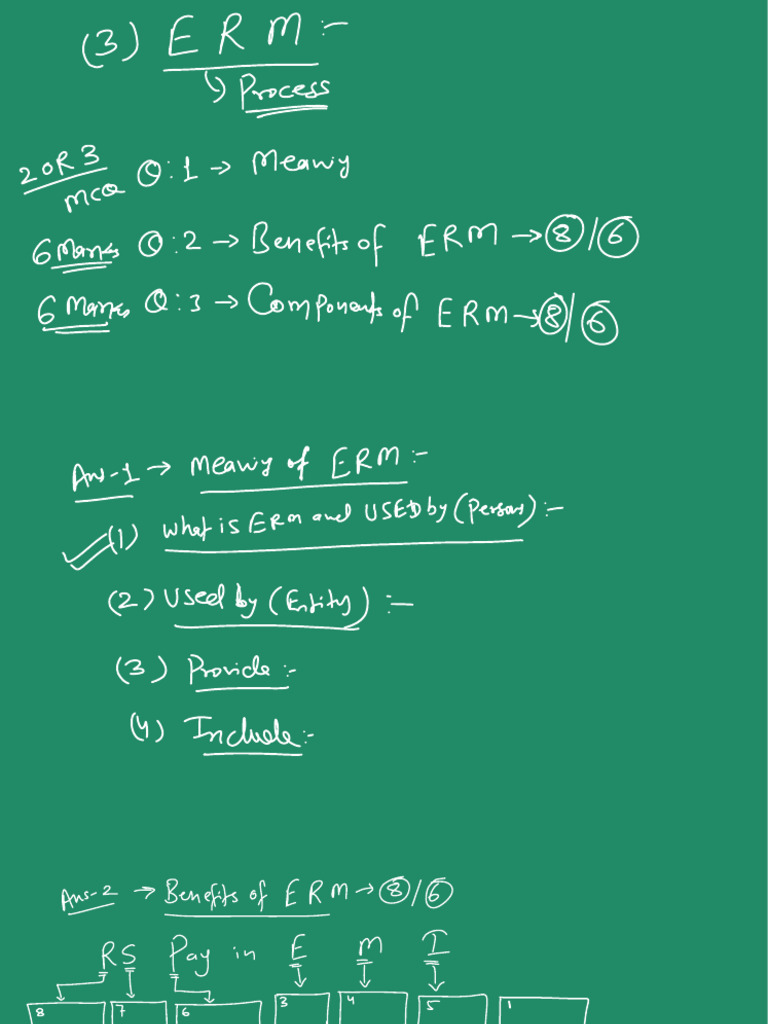 (3) ERM:-
↳ Process
2 OR 3 MCQ Q:1 → Meaning
6 Marks Q:2 → Benefits of ERM → 8/6
6 Marks Q:3 → Components of ERM → 8/6
Ans-1 → Meaning of ERM:-
(1) What is ERM and USED by (Person):-
(2) Used by (Entity):-
(3) Provide:-
(4) Include:-
Ans-2 → Benefits of ERM → 8/6
RS Pay in E M I
8 7 6 3 4 5 1